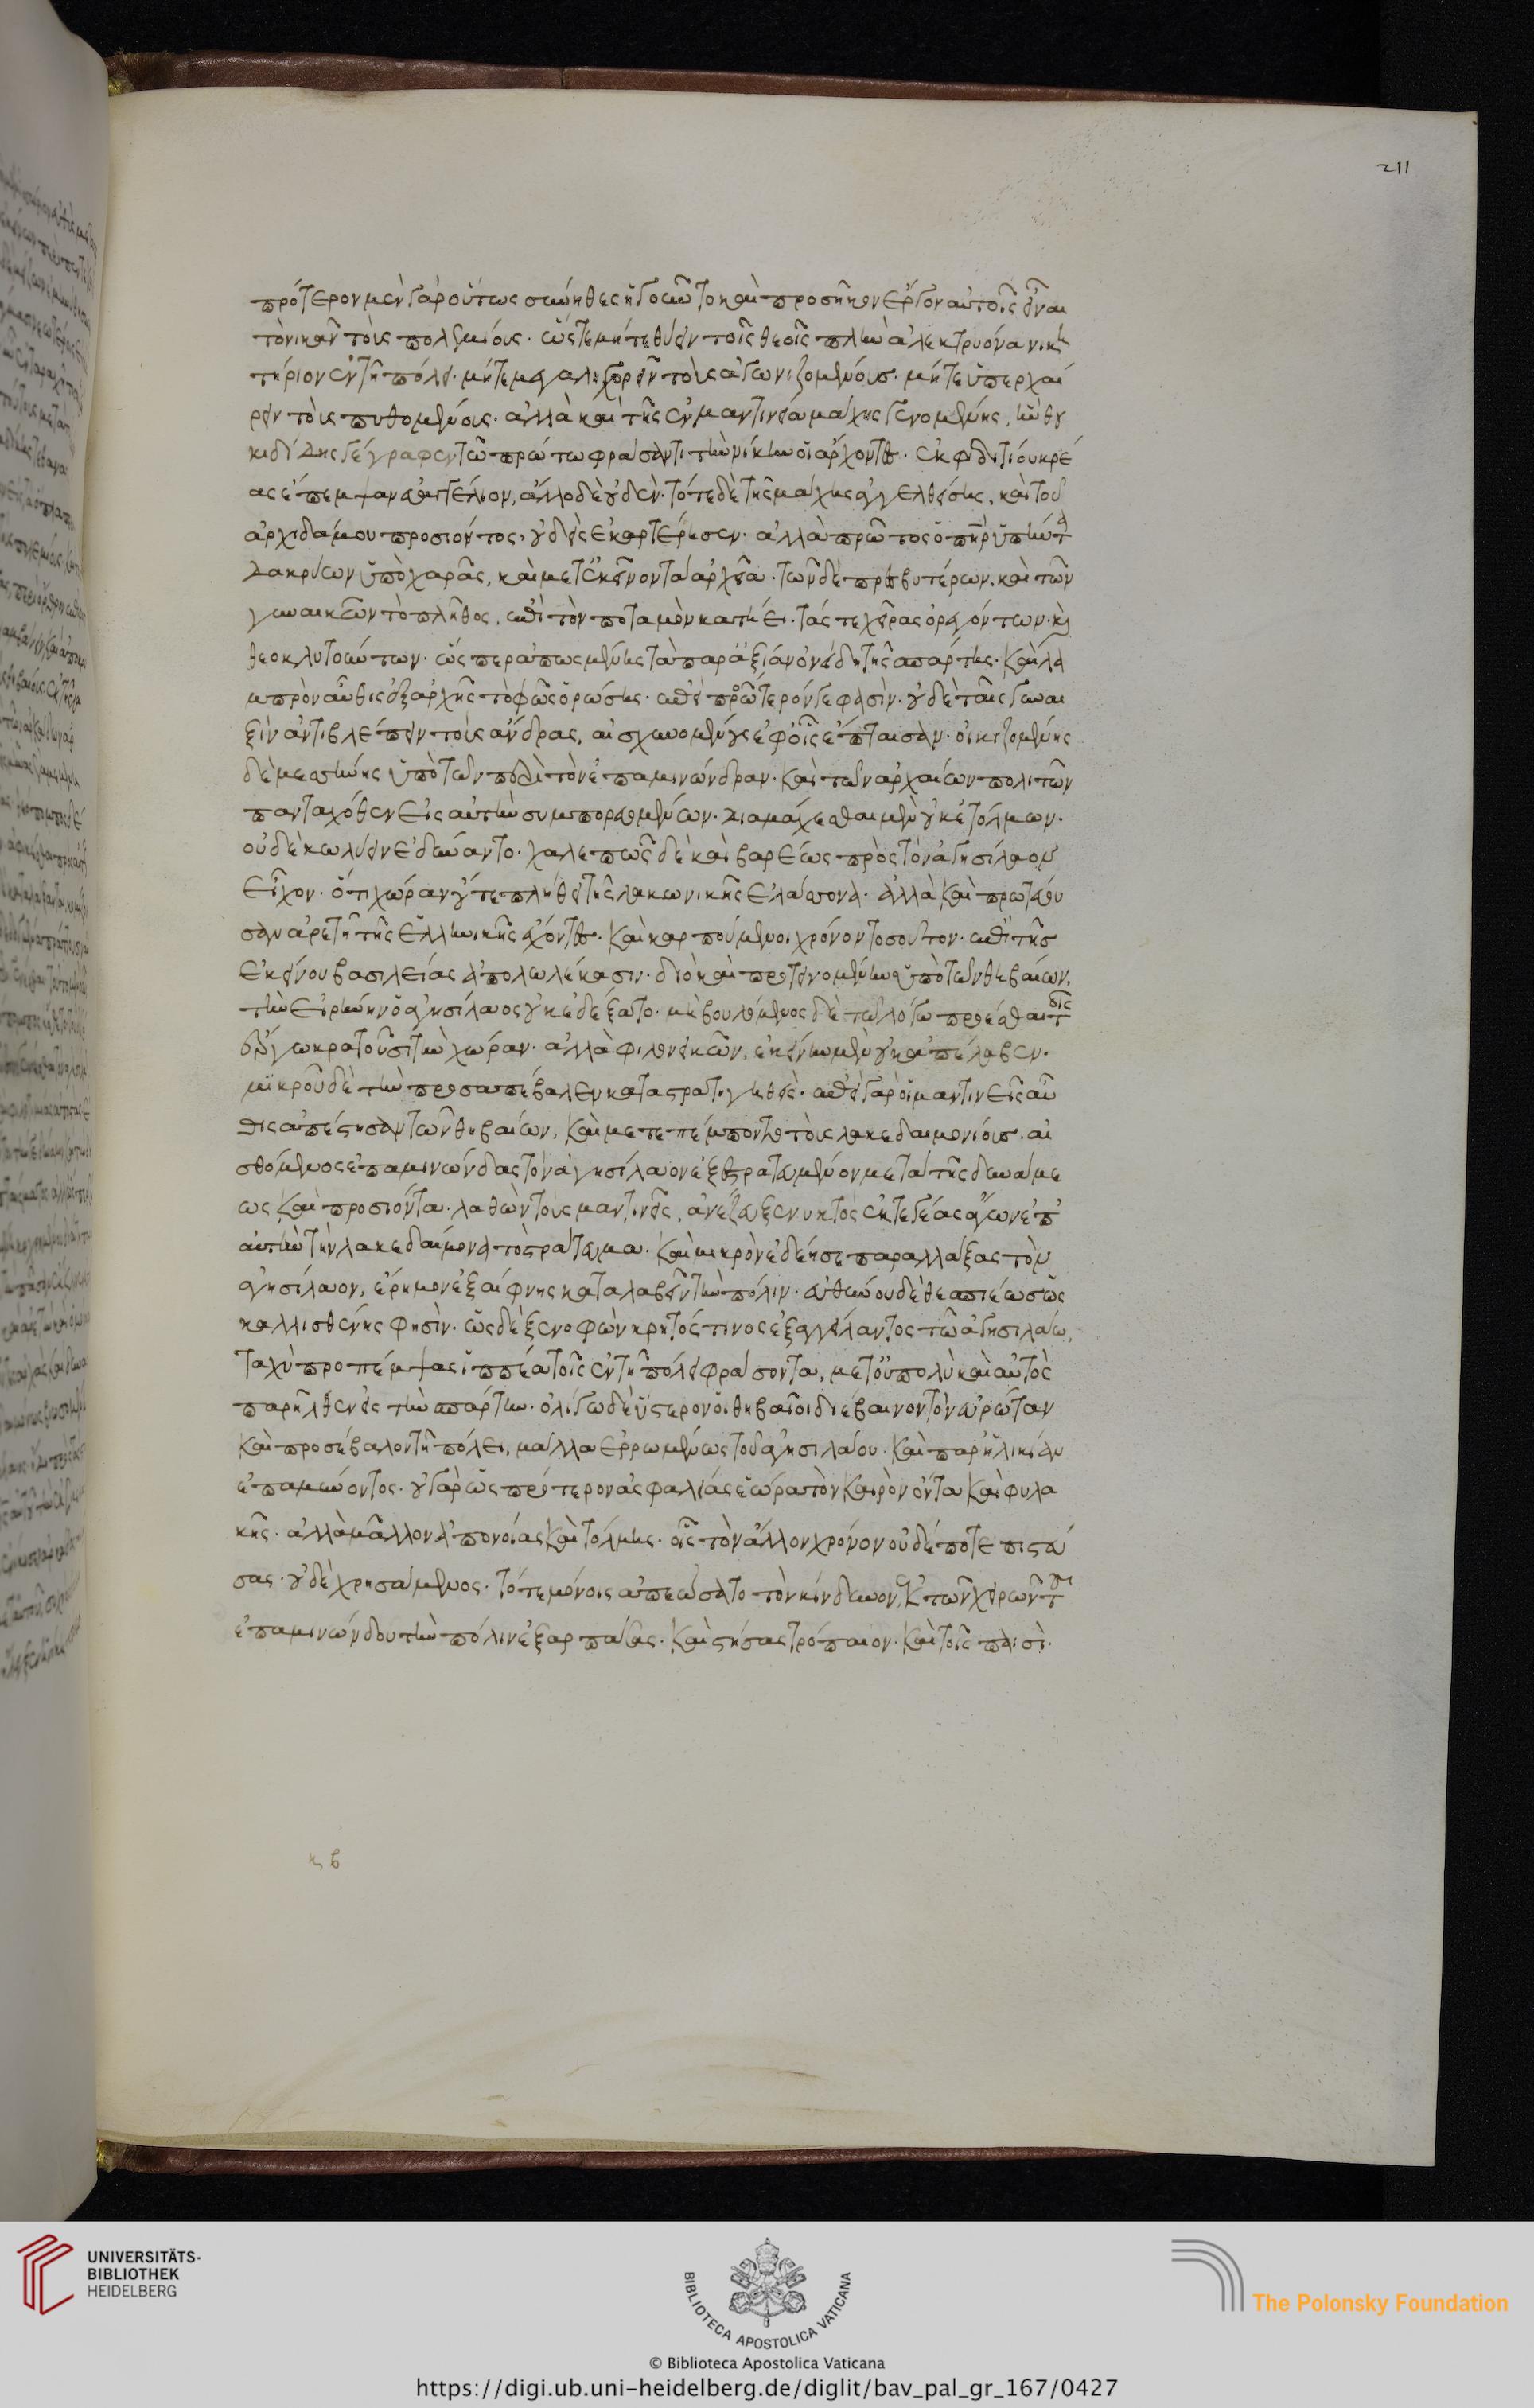 211
πρότερον μὲν γὰρ οὕτως σύνηθες ἡγοῦντο καὶ προσῆκον ἔργον αὐτοῖς εἶναι
τὸ νικᾶν τοὺς πολεμίους. ὥστε μήτε θύειν τοῖς θεοῖς πλὴν ἀλεκτρυόνα νικη
τήριον ἐν τῆ πόλει. μήτε μεγαληγορεῖν τοὺς ἀγωνιζομένους. μήτε ὑπερχαί
ρειν τοὺς πυθομένους. ἀλλὰ καὶ τῆς ἐν μαντινεία μάχης γενομένης, ἣν θου
κιδίδης γέγραφεν τῶ πρώτω φράσαντι τὴν νίκην οἱ ἄρχοντες. ἐκ φιδιτίου κρέ
ας ἔπεμψαν εὐαγγέλιον, ἄλλο δὲ οὐδέν. τότε δὲ τῆς μάχης ἀγγελθείσης, καὶ τοῦ
ἀρχιδάμου προσιόντος, οὐδεὶς ἐκαρτέρησεν. ἀλλὰ πρῶτος ὁ πατὴρ ἀπήντα
δακρύων ὑπὸ χαρᾶς, καὶ μετ' ἐκεῖνον τὰ ἀρχεῖα. τῶν δὲ πρεσβυτέρων. καὶ τῶν
γυναικῶν τὸ πλῆθος, ἐπὶ τὸν ποταμὸν κατήει. τάς τε χεῖρας ὀρεγόντων. καὶ
θεοκλυτούντων. ὥσπερ ἀπωσμένης τὰ παρ' ἀξίαν ὀνείδη τῆς σπάρτης. καὶ λα
μπρὸν αὖθις ἐξαρχῆς τὸ φῶς ὁρώσης. ἐπεὶ πρότερόν γε φασὶν. οὐδὲ ταῖς γυναι
ξὶν ἀντιβλέπειν τοὺς ἄνδρας, αἰσχυνομένους ἐφ' οἷς ἔπταισαν. οἰκιζομένης
δὲ μεσσήνης ὑπὸ τῶν περὶ τὸν ἐπαμινώνδαν. καὶ τῶν ἀρχαίων πολιτῶν
πανταχόθεν εἰς αὐτὴν συμπορευομένων. διαμάχεσθαι μὲν οὐκ ἐτόλμων.
οὐδὲ κωλύειν ἐδύναντο. χαλεπῶς δὲ καὶ βαρέως πρὸς τὸν ἀγησίλαον
εἶχον. ὅτι χώραν οὔτε πλήθει τῆς λακωνικῆς ἐλάσσονα. ἀλλὰ καὶ πρωτεύου
σαν ἀρετῆ τῆς ἑλληνικῆς ἔχοντες. καὶ καρπούμενοι χρόνον τοσοῦτον. ἐπὶ τῆς
ἐκείνου βασιλείας ἀπολωλέκασιν. διὸ καὶ προτεινομένην ὑπὸ τῶν θηβαίων,
τὴν εἰρήνην ὁ ἀγησίλαος οὐκ ἐδέξατο. μὴ βουλόμενος δὲ τῶ λόγω προέσθαι τοῖς
ἔργω κρατοῦσι τὴν χώραν. ἀλλὰ φιλονεικῶν, ἐκείνην μὲν οὐκ ἀπέλαβεν.
μικροῦ δὲ τὴν προσαπέβαλεν καταστρατηγηθείς. ἐπεὶ γὰρ οἱ μαντινεῖς αὖ
θις ἀπέστησαν τῶν θηβαίων, καὶ μετεπέμποντο τοὺς λακεδαιμονίους. αἰ
σθόμενος ἐπαμινώνδας τὸν ἀγησίλαον ἐξεστρατευμένον μετὰ τῆς δυνάμε
ως καὶ προσιόντα. λαθὼν τοὺς μαντινεῖς, ἀνέζευξεν νυκτὸς ἐκ τεγέας ἄγων ἐπ'
αὐτὴν τὴν λακεδαίμονα τὸ στράτευμα. καὶ μικρὸν ἐδέησε παραλλάξας τὸν
ἀγησίλαον, ἔρημον ἐξαίφνης καταλαβεῖν τὴν πόλιν. εὐθύνου δὲ θεσπιέως ὡς
καλλισθένης φησὶν. ὡς δὲ ξενοφῶν κρητός τινος ἐξαγγείλαντος τῶ ἀγησιλάω,
ταχὺ προπέμψας ἱππέα τοῖς ἐν τῆ πόλει φράσοντα, μετ' οὐ πολὺ καὶ αὐτὸς
παρῆλθεν εἰς τὴν σπάρτην. ὀλίγω δὲ ὕστερον οἱ θηβαῖοι διέβαινον τὸν εὐρώταν
καὶ προσέβαλον τῆ πόλει, μάλλα ἐρρωμένως τοῦ ἀγησιλάου. καὶ παρ' ἡλικίαν
ἐπαμύνοντος. οὐ γὰρ ὡς πρότερον ἀσφαλείας ἑώρα τὸν καιρὸν ὄντα καὶ φυλα
κῆς. ἀλλὰ μᾶλλον ἀπονοίας καὶ τόλμης. οἷς τὸν ἄλλον χρόνον οὐδέποτε πιστεύ
σας. οὐδὲ χρησάμενος. τότε μόνοις ἀπεώσατο τὸν κίνδυνον, ἐκ τῶν χειρῶν τοῦ
ἐπαμινώνδου τὴν πόλιν ἐξαρπάσας. καὶ στήσας τρόπαιον. καὶ τοῖς παισὶ.
κβ
UNIVERSITÄTS-
BIBLIOTHEK
HEIDELBERG
BIBLIOTECA APOSTOLICA VATICANA
The Polonsky Foundation
© Biblioteca Apostolica Vaticana
https://digi.ub.uni-heidelberg.de/diglit/bav_pal_gr_167/0427